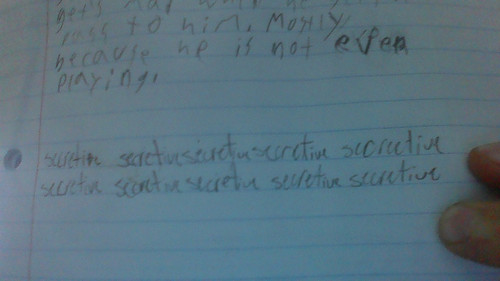 gets mad when he
loss to him, Mostly
because he is not even
playing.
secretive secretive secretive secretive secretive
secretive secretive secretive secretive secretive